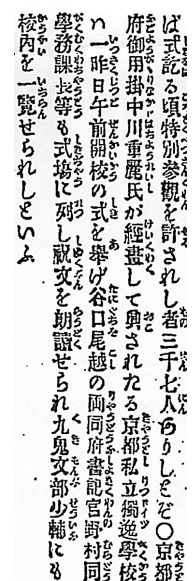 ば式訖る頃特別參觀を許されし者三千七人ありしとぞ○京都
府御用掛中川重麗氏が經畫して興されたる京都私立獨逸學校
ハ一昨日午前開校の式を擧げ谷口尾越の兩同府書記官野村同
學務課長等も式塲に列し祝文を朗讀せられ九鬼文部少輔にも
校内を一覽せられしといふ